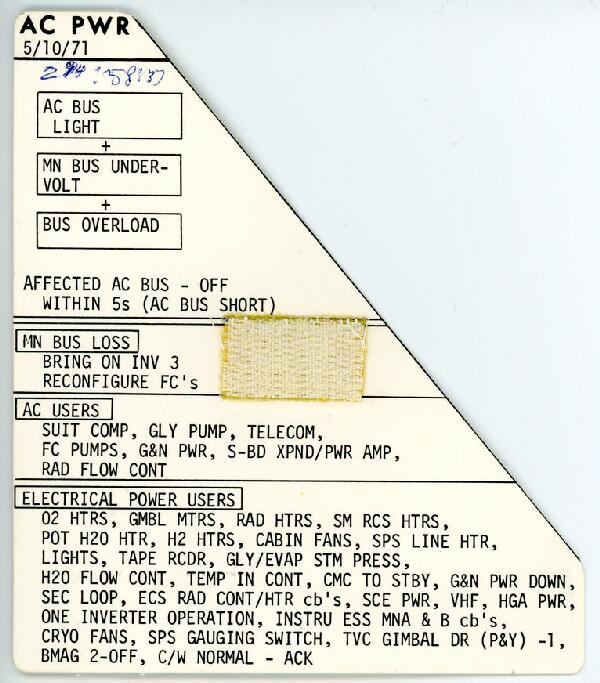 AC PWR
5/10/71
AC BUS
LIGHT
+
MN BUS UNDER-
VOLT
+
BUS OVERLOAD
AFFECTED AC BUS - OFF
WITHIN 5s (AC BUS SHORT)
MN BUS LOSS
BRING ON INV 3
RECONFIGURE FC's
AC USERS
SUIT COMP, GLY PUMP, TELECOM,
FC PUMPS, G&N PWR, S-BD XPND/PWR AMP,
RAD FLOW CONT
ELECTRICAL POWER USERS
O2 HTRS, GMBL MTRS, RAD HTRS, SM RCS HTRS,
POT H2O HTR, H2 HTRS, CABIN FANS, SPS LINE HTR,
LIGHTS, TAPE RCDR, GLY/EVAP STM PRESS,
H2O FLOW CONT, TEMP IN CONT, CMC TO STBY, G&N PWR DOWN,
SEC LOOP, ECS RAD CONT/HTR cb's, SCE PWR, VHF, HGA PWR,
ONE INVERTER OPERATION, INSTRU ESS MNA & B cb's,
CRYO FANS, SPS GAUGING SWITCH, TVC GIMBAL DR (P&Y) -1,
BMAG 2-OFF, C/W NORMAL - ACK